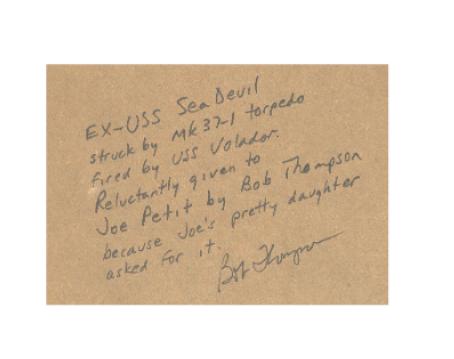 EX-USS Sea Devil
struck by Mk37-1 torpedo
fired by USS Volador.
Reluctantly given to
Joe Petit by Bob Thompson
because Joe's pretty daughter
asked for it.
Bob Thompson